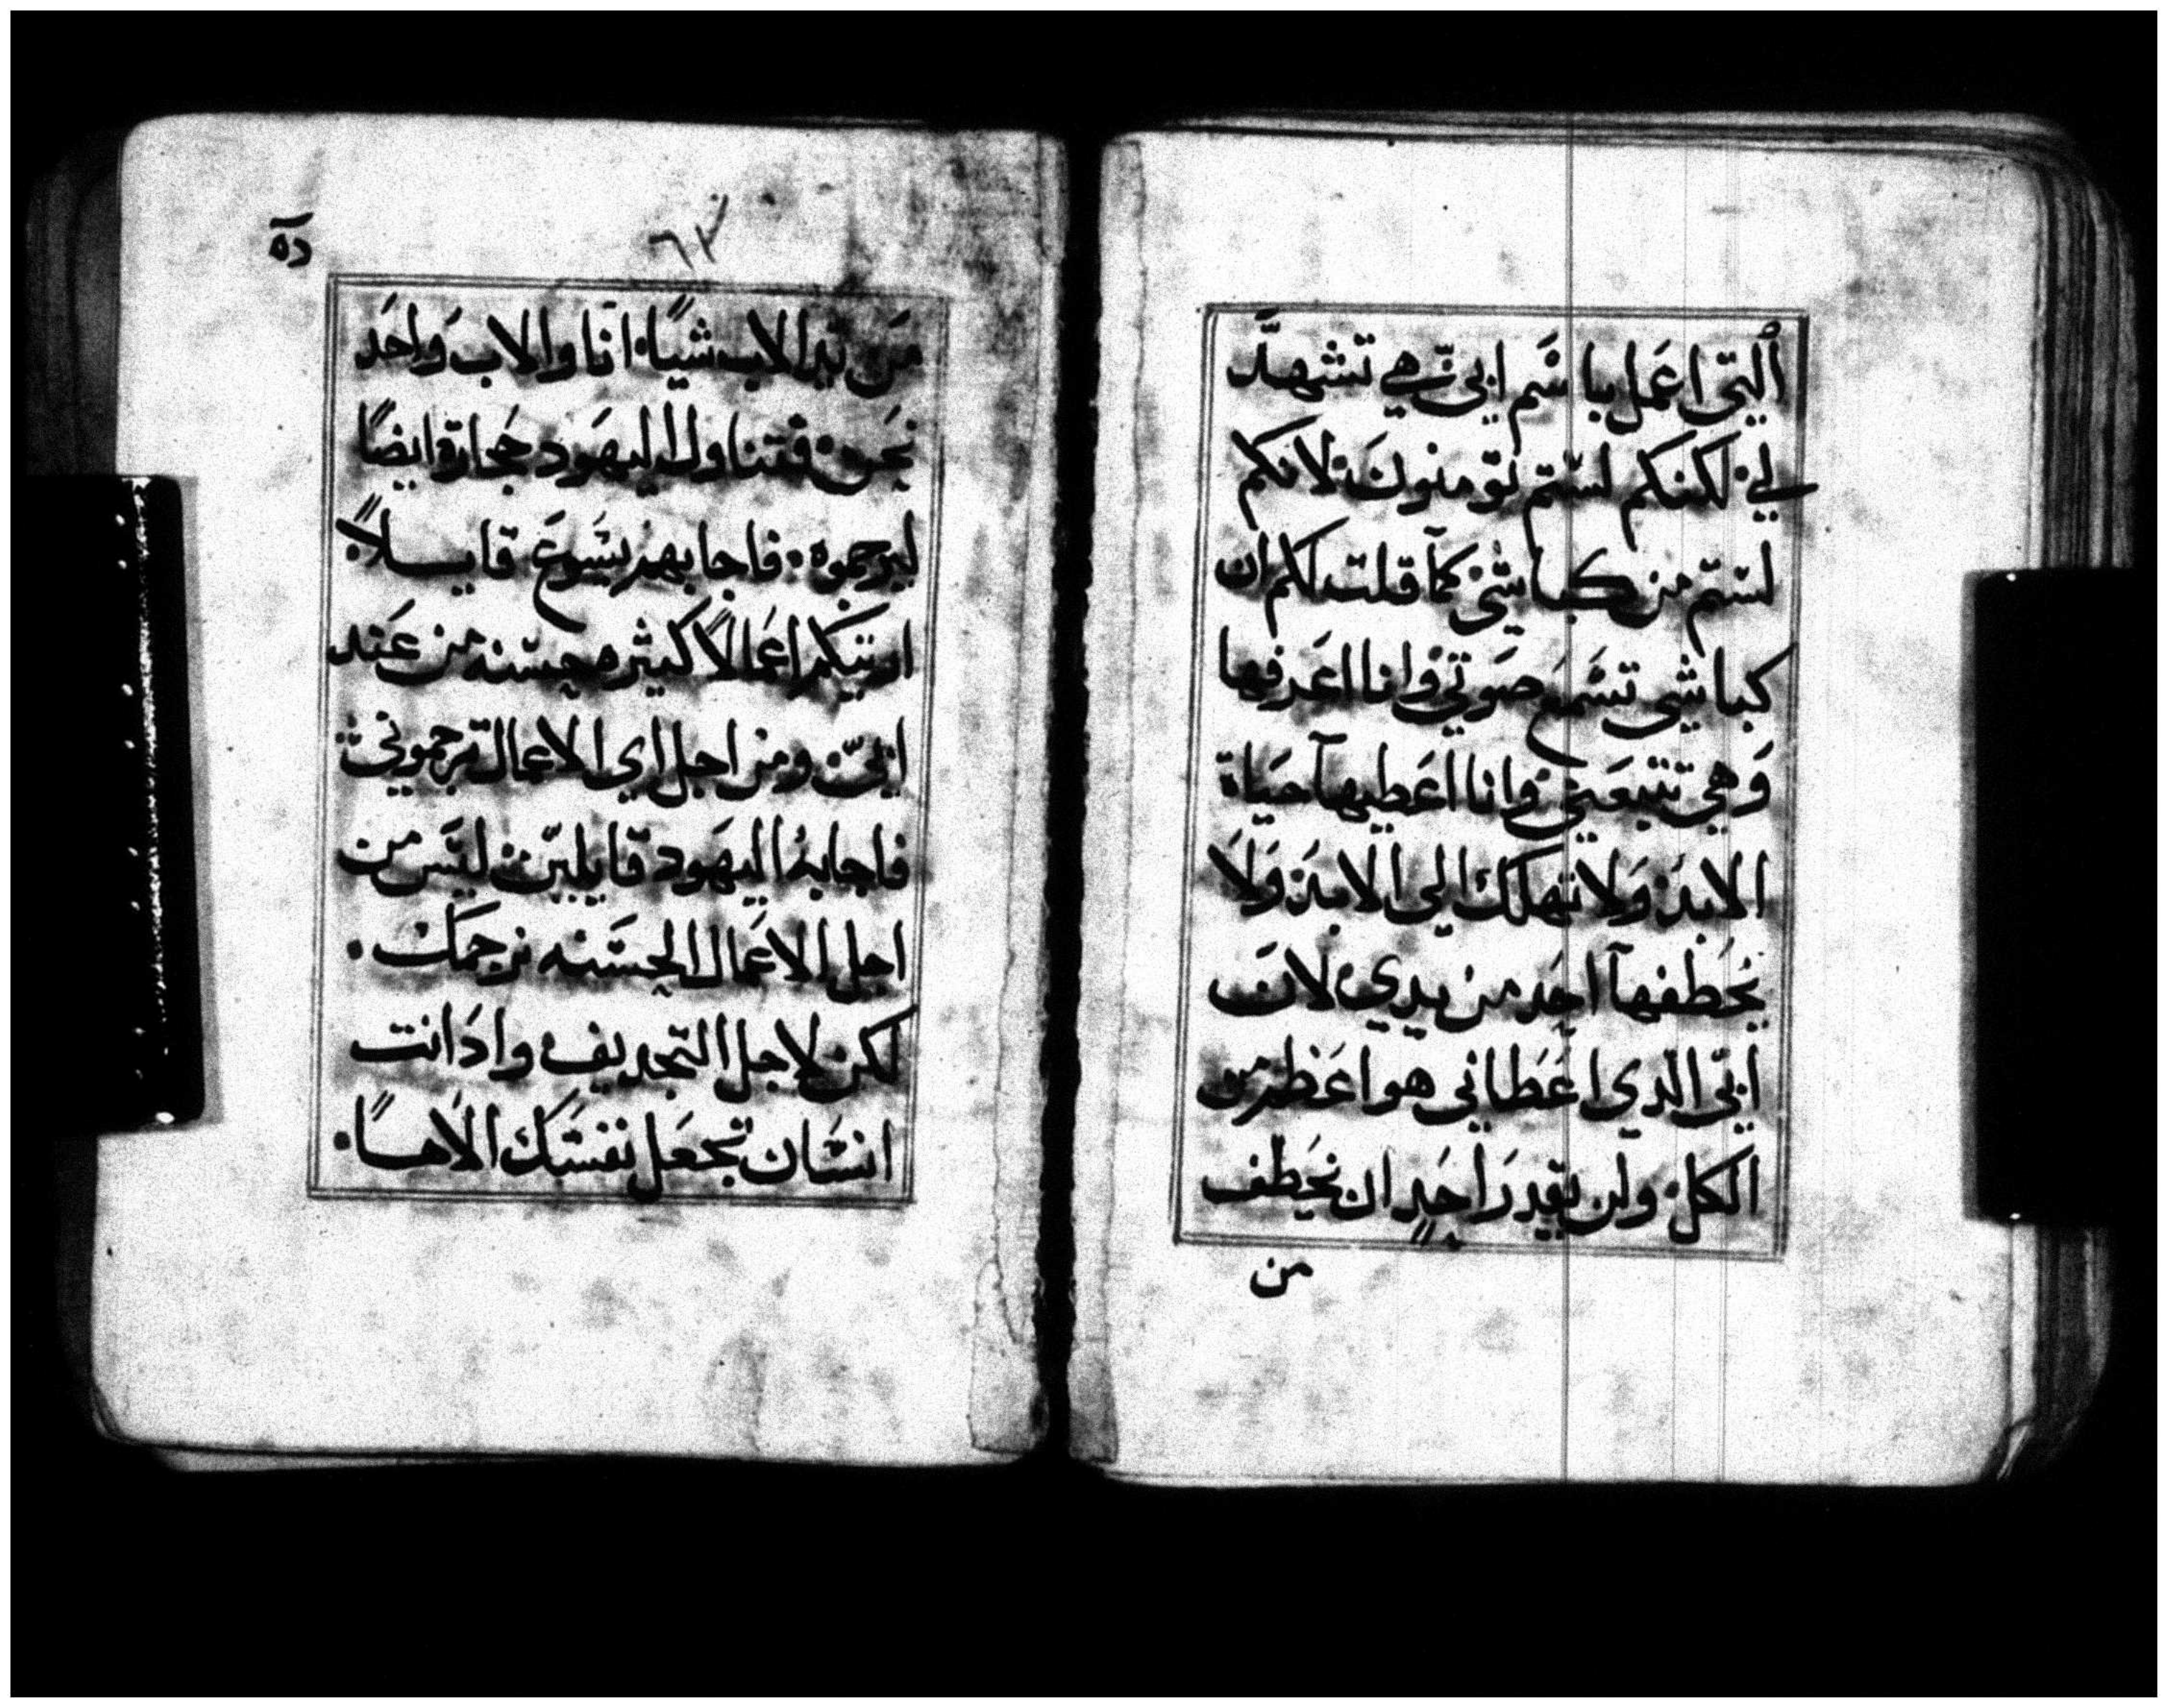 ألتي اعمل باسم ابي هي تشهد
لي لكنكم لستم تومنون لانكم
لستم من كباشي كما قلت لكم ان
كباشي تسمع صوتي وانا اعرفها
وهي تتبعني وانا اعطيها حياة
الابد ولا تهلك الي الابد ولا
يخطفها احد من يدي لان
ابي الدي اعطاني هو اعظم من
الكل ولن يقدر احد ان يخطف
من
٦٣
من يد الاب شيًا انا والاب واحد
نحن فتناول اليهود حجارة ايضًا
ليرجموه فاجابهم يسوع قايلاً
اريتكم اعمالاً كثيره حسنه من عند
ابي ومن اجل اي الاعمال ترجموني
فاجابه اليهود قايلين ليس من
اجل الاعمال الحسنه نرجمك
لكن لاجل التجديف واد انت
انسان تجعل نفسك الاهاً